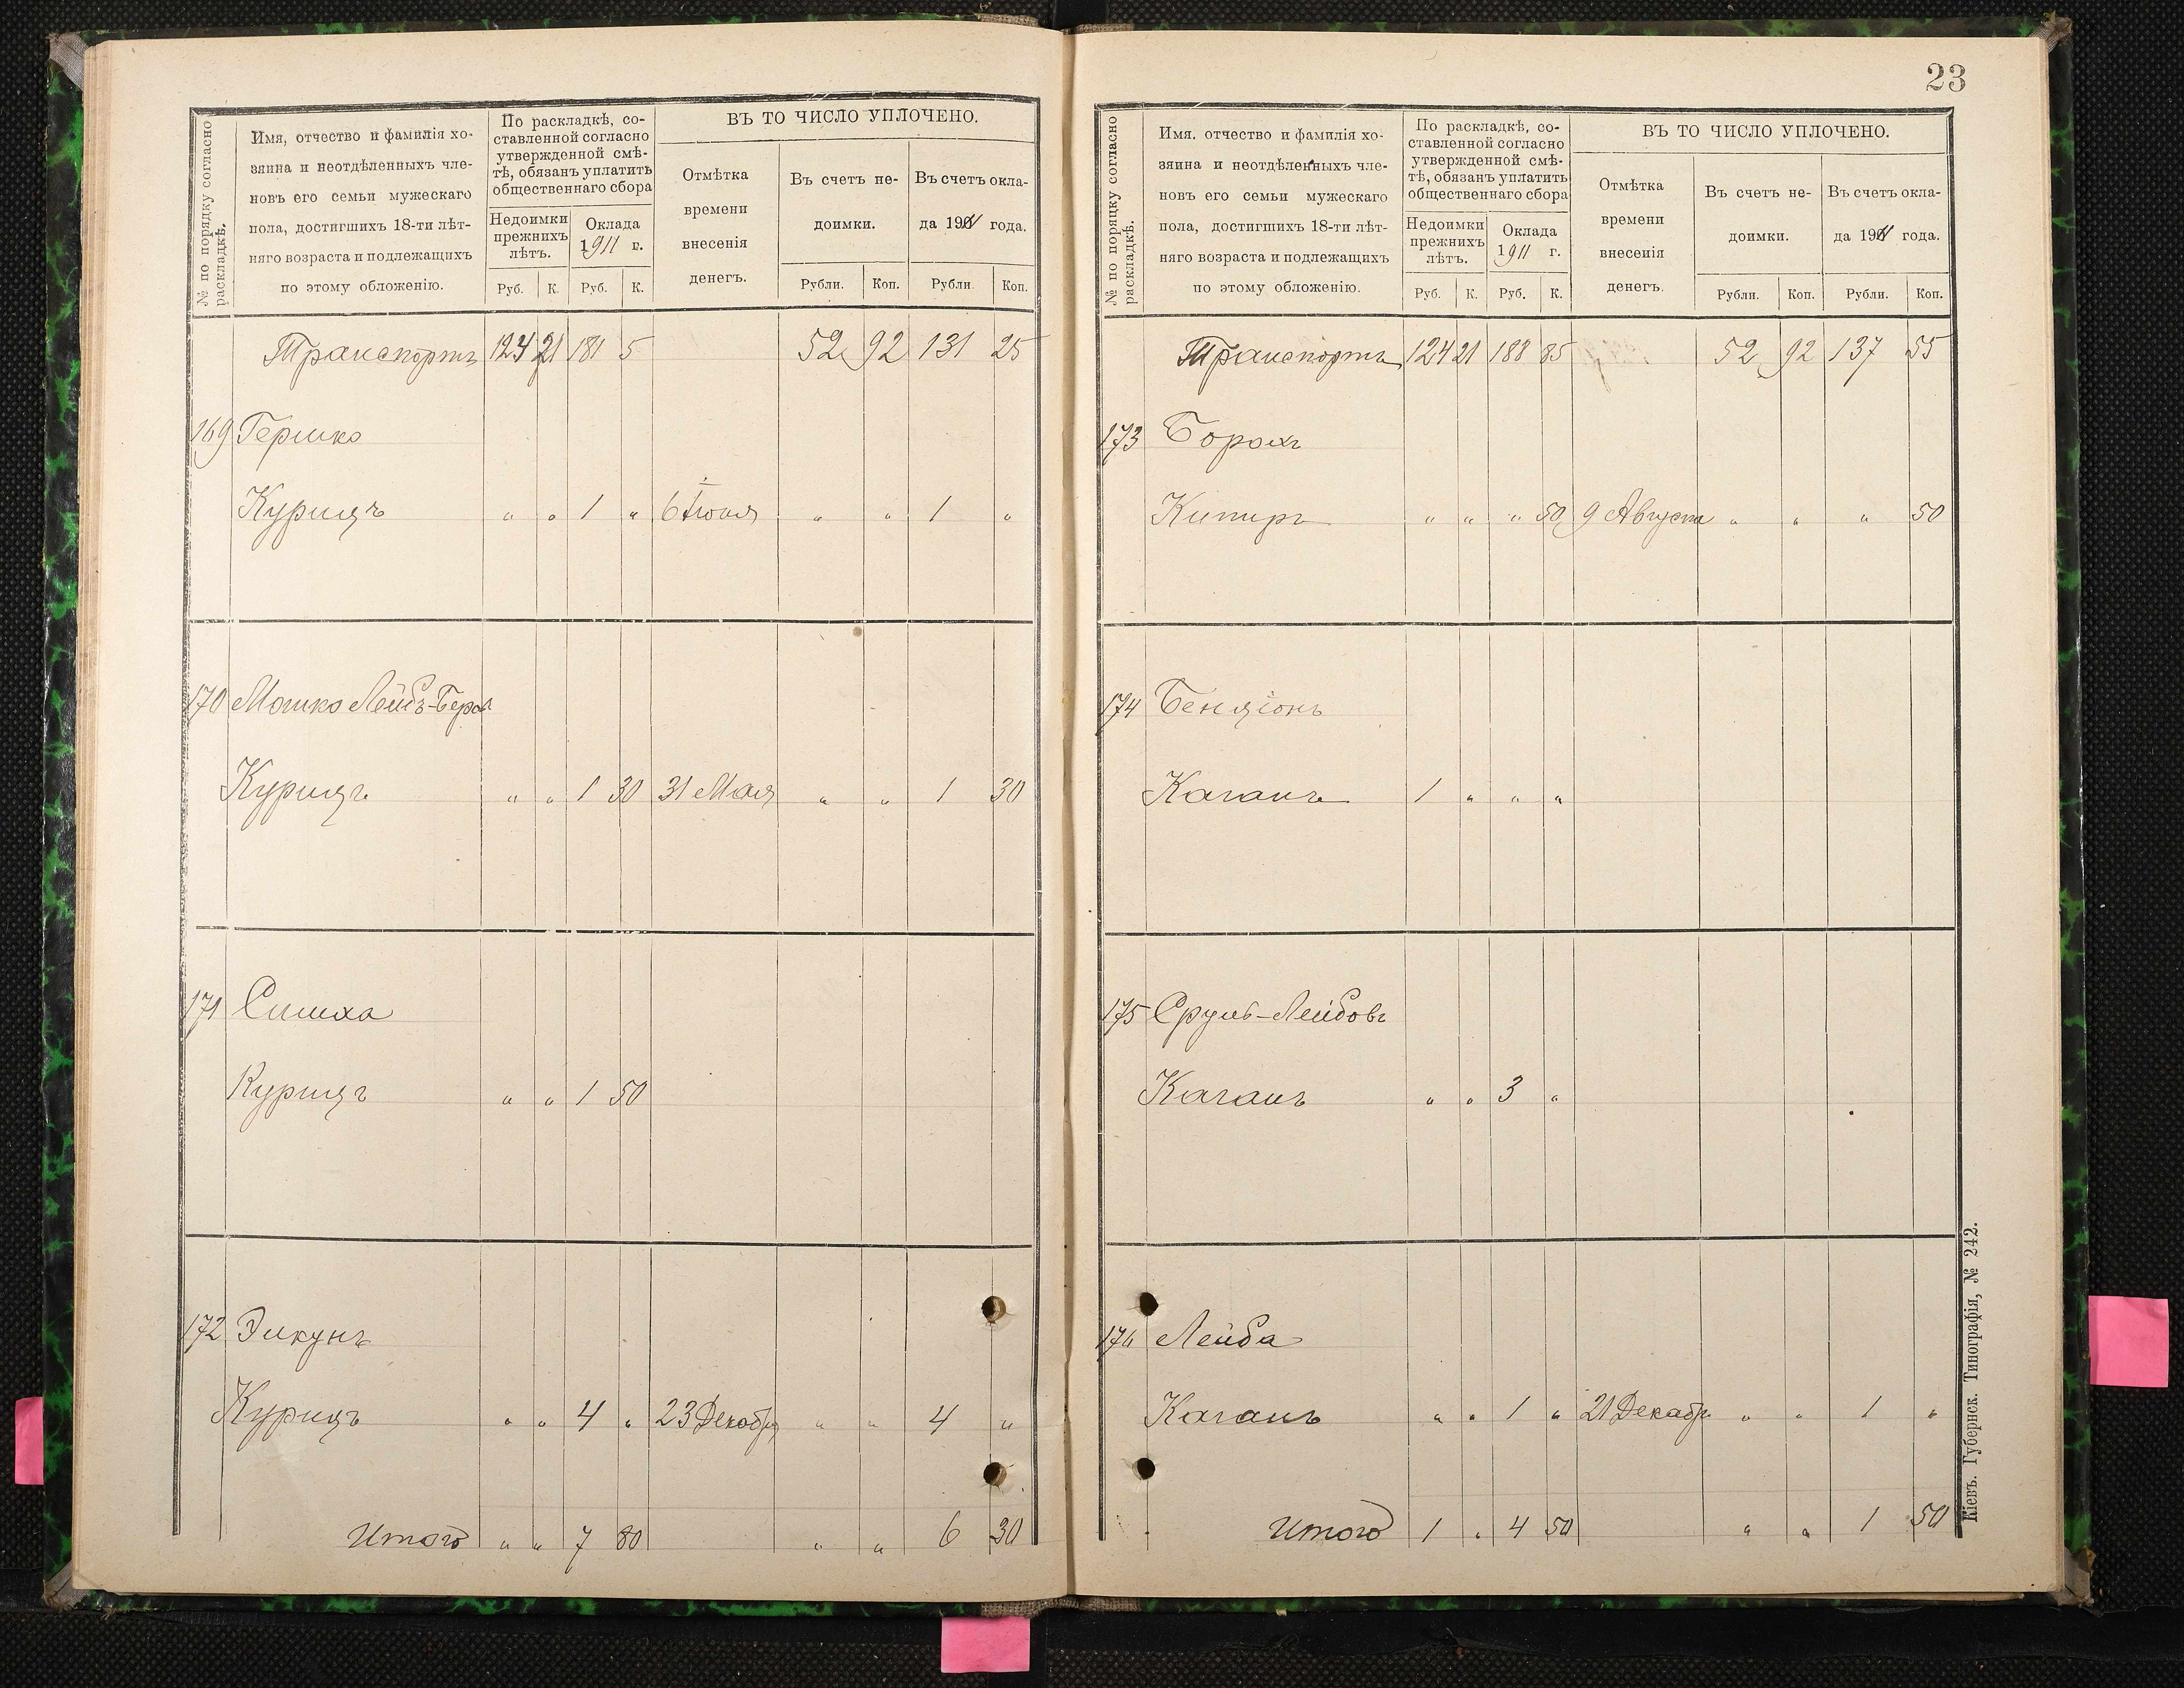 23
№ по порядку согласно раскладкѣ.
Имя, отчество и фамилія хо-
зяина и неотдѣленныхъ чле-
новъ его семьи мужескаго
пола, достигшихъ 18-ти лѣт-
няго возраста и подлежащихъ
по этому обложенію.
По раскладкѣ, со-
ставленной согласно
утвержденной смѣ-
тѣ, обязанъ уплатить
общественнаго сбора
Недоимки прежнихъ лѣтъ.
Оклада 1911 г.
Руб. К. Руб. К.
ВЪ ТО ЧИСЛО УПЛОЧЕНО.
Отмѣтка
времени
внесенія
денегъ.
Въ счетъ не-
доимки.
Въ счетъ окла-
да 1911 года.
Рубли. Коп. Рубли. Коп.
Транспортъ 124 21 181 5 52 92 131 25
169 Гершко
Курицъ " " 1 " 6 Іюля " " 1 "
170 Мошко Лейбъ-Беръ
Курицъ " " 1 30 31 Мая " " 1 30
171 Симха
Курицъ " " 1 50
172 Элкунъ
Курицъ " " 4 " 23 Декабря " " 4 "
Итого " " 7 80 " " 6 30
№ по порядку согласно раскладкѣ.
Имя, отчество и фамилія хо-
зяина и неотдѣленныхъ чле-
новъ его семьи мужескаго
пола, достигшихъ 18-ти лѣт-
няго возраста и подлежащихъ
по этому обложенію.
По раскладкѣ, со-
ставленной согласно
утвержденной смѣ-
тѣ, обязанъ уплатить
общественнаго сбора
Недоимки прежнихъ лѣтъ.
Оклада 1911 г.
Руб. К. Руб. К.
ВЪ ТО ЧИСЛО УПЛОЧЕНО.
Отмѣтка
времени
внесенія
денегъ.
Въ счетъ не-
доимки.
Въ счетъ окла-
да 1911 года.
Рубли. Коп. Рубли. Коп.
Транспортъ 124 21 188 85 52 92 137 55
173 Борохъ
Кипиръ " " " 50 9 Августа " " " 50
174 Бенціонъ
Каганъ 1 " " "
175 Сруль-Лейбовъ
Каганъ " " 3 "
176 Лейба
Каганъ " " 1 " 21 Декабр. " " 1 "
Итого 1 " 4 50 " " 1 50
Кіевъ. Губернск. Типографія, № 242.